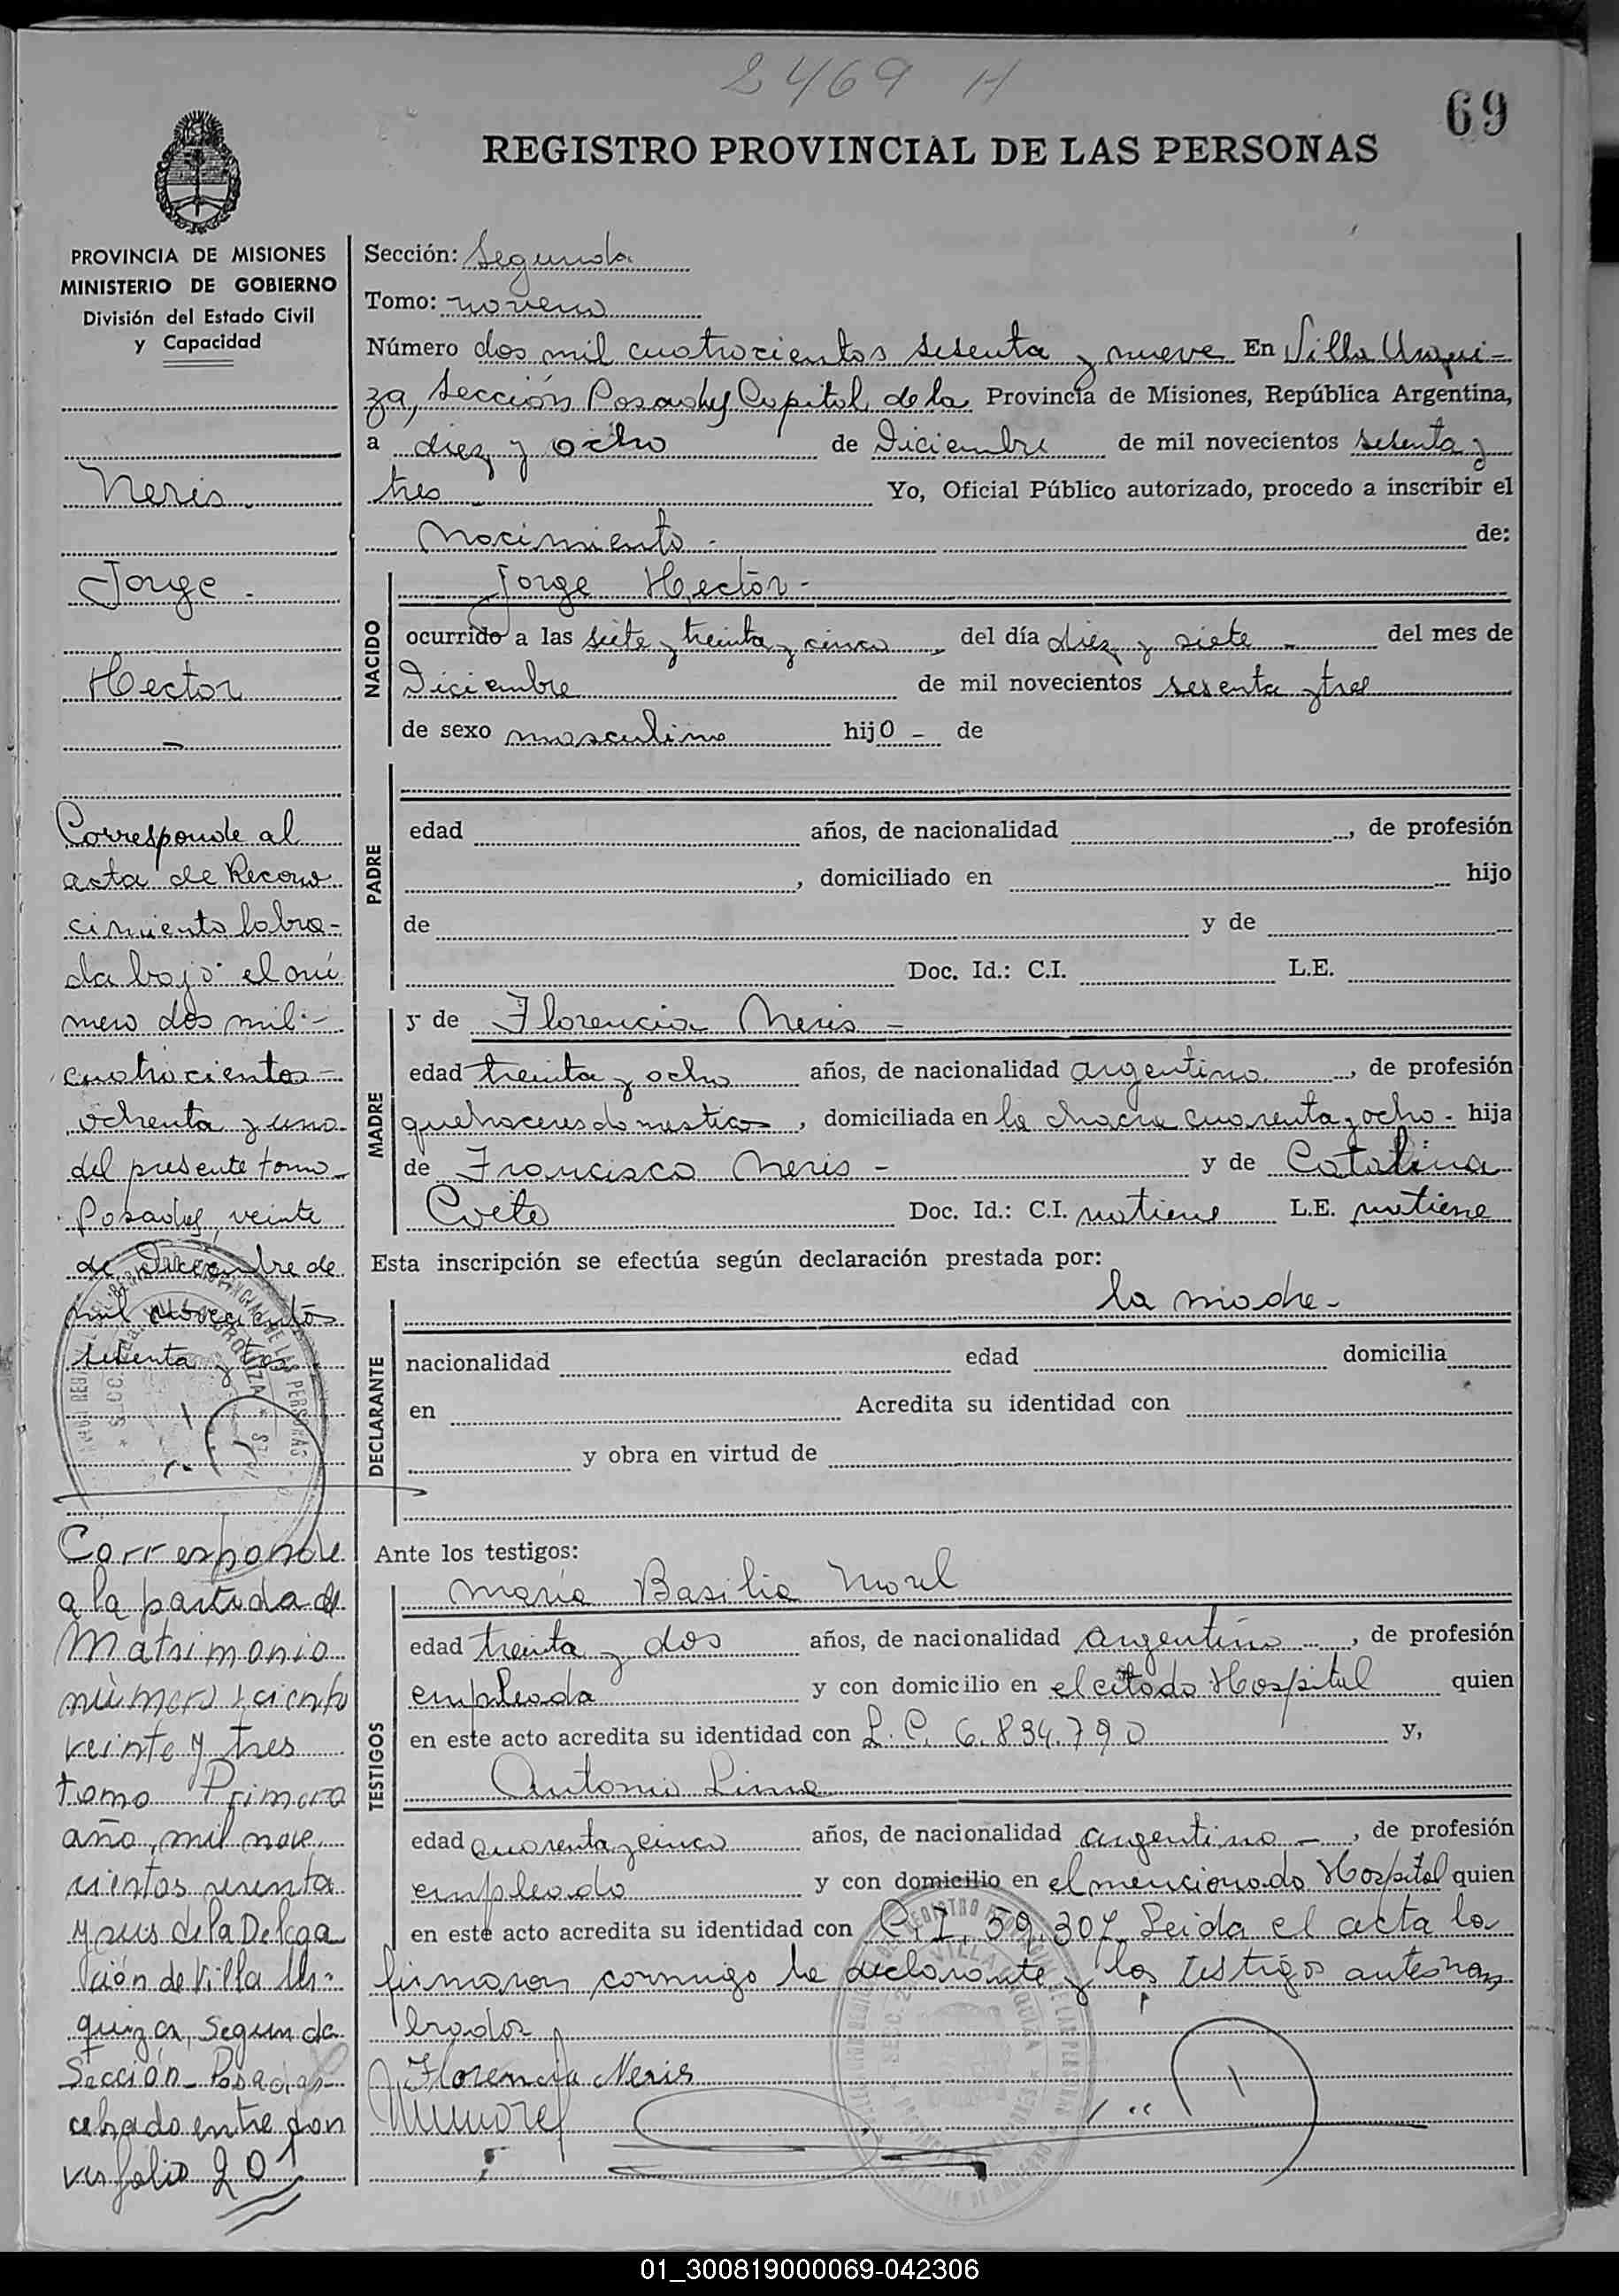 2469 H
69
REGISTRO PROVINCIAL DE LAS PERSONAS
PROVINCIA DE MISIONES
MINISTERIO DE GOBIERNO
División del Estado Civil
y Capacidad
Neris
Jorge -
Hector
-
Corresponde al
acta de Recono
cimiento labra-
da bajo el nú
mero dos mil -
cuatrocientos -
ochenta y uno
del presente tomo
Posadas, veinte
de Diciembre de
mil novecientos
sesenta y tres
Corresponde
a la partida de
Matrimonio
número ciento
veinte y tres
tomo Primero
año mil nove
cientos sesenta
y seis de la Delega
ción de Villa Ur-
quiza, Segunda
Sección - Posadas
labrado entre don
ver folio 201
Sección: Segunda
Tomo: noveno
Número dos mil cuatrocientos sesenta y nueve En Villa Urqui-
za, Sección Posadas Capital de la Provincia de Misiones, República Argentina,
a diez y ocho de Diciembre de mil novecientos sesenta y
tres Yo, Oficial Público autorizado, procedo a inscribir el
Nacimiento - de:
NACIDO
Jorge Hector -
ocurrido a las siete y treinta y cinco del día diez y siete - del mes de
Diciembre de mil novecientos sesenta y tres
de sexo masculino hijo - de
PADRE
edad años, de nacionalidad , de profesión
, domiciliado en hijo
de y de
Doc. Id.: C.I. L.E.
MADRE
y de Florencia Neris -
edad treinta y ocho años, de nacionalidad argentina , de profesión
quehaceres domesticos , domiciliada en la chacra cuarenta y ocho - hija
de Francisco Neris - y de Catalina
Doc. Id.: C.I. no tiene L.E. no tiene
Esta inscripción se efectúa según declaración prestada por:
la madre -
DECLARANTE
nacionalidad edad domicilia
en Acredita su identidad con
y obra en virtud de
Ante los testigos:
TESTIGOS
Maria Basilia Morel
edad treinta y dos años, de nacionalidad argentina , de profesión
empleada y con domicilio en el citado Hospital quien
en este acto acredita su identidad con L.C. 6.834.790 y,
Antonio Lima
edad cuarenta y cinco años, de nacionalidad argentino - , de profesión
empleado y con domicilio en el mencionado Hospital quien
en este acto acredita su identidad con C.I. 59.307 Leida el acta la
firmaron conmigo la declarante y los testigos antes nom
brados
Florencia Neris
01_300819000069-042306